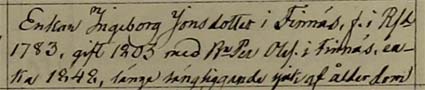 Enkan Ingeborg Jonsdotter i Finnäs, f. i Rfs
1783, gift 1803 med Per Olofs. i Finnäs, en-
ka 1848, länge sängliggande sjuk af ålderdom